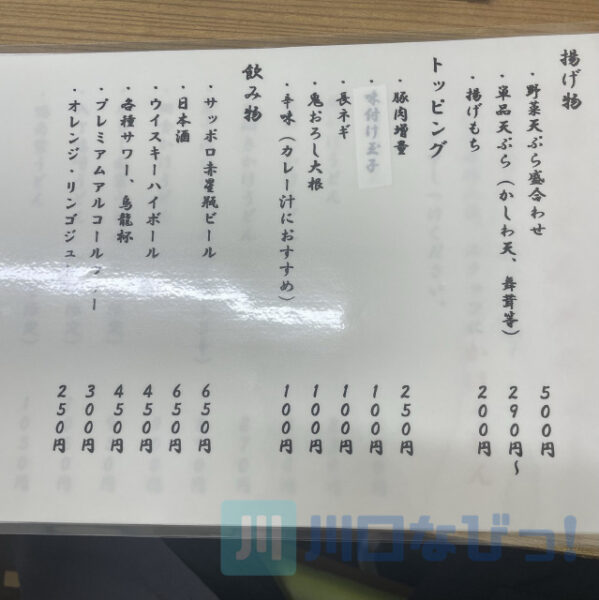 揚げ物
・野菜天ぷら盛合わせ 500円
・単品天ぷら(かしわ天、舞茸等) 290円~
・揚げもち 200円
トッピング
・豚肉増量 250円
・味付け玉子 100円
・長ネギ 100円
・鬼おろし大根 100円
・辛味(カレー汁におすすめ) 100円
飲み物
・サッポロ赤星瓶ビール 650円
・日本酒 650円
・ウイスキーハイボール 450円
・各種サワー、烏龍杯 450円
・プレミアムアルコール 300円
・オレンジ・リンゴジュ 250円
川 川口なびっ!